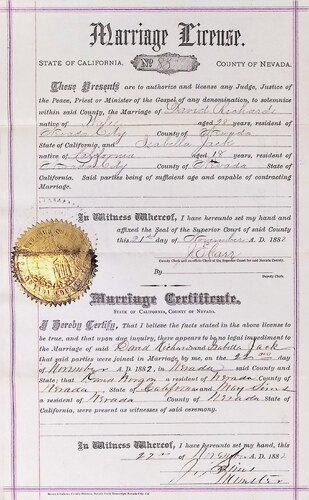 Marriage License.
STATE OF CALIFORNIA. No. 88 COUNTY OF NEVADA.
These Presents are to authorize and license any Judge, Justice of
the Peace, Priest or Minister of the Gospel of any denomination, to solemnize
within said County, the Marriage of David Richards
native of Wales aged 28 years, resident of
Nevada City County of Nevada
State of California, and Isabella Jack
native of California aged 18 years, resident of
City County of Nevada State of
California. Said parties being of sufficient age and capable of contracting
Marriage.
In Witness Whereof, I have hereunto set my hand and
affixed the Seal of the Superior Court of said County
this 21st day of November A. D. 1882
County Clerk and ex-officio Clerk of the Superior Court for said Nevada County.
By
Deputy Clerk.
Marriage Certificate.
STATE OF CALIFORNIA, COUNTY OF NEVADA.
I Hereby Certify, That I believe the facts stated in the above license to
be true, and that upon due inquiry, there appears to be no legal impediment to
the Marriage of said David Richards and Isabella Jack
that said parties were joined in Marriage by me, on the 22nd day
of November A. D. 1882, in Nevada said County and
State; that a resident of Nevada County of
Nevada, State of California and May
a resident of Nevada County of Nevada State of
California, were present as witnesses of said ceremony.
In Witness Whereof, I have hereunto set my hand, this
22nd day of November A. D. 1882
J. Sims
Minister